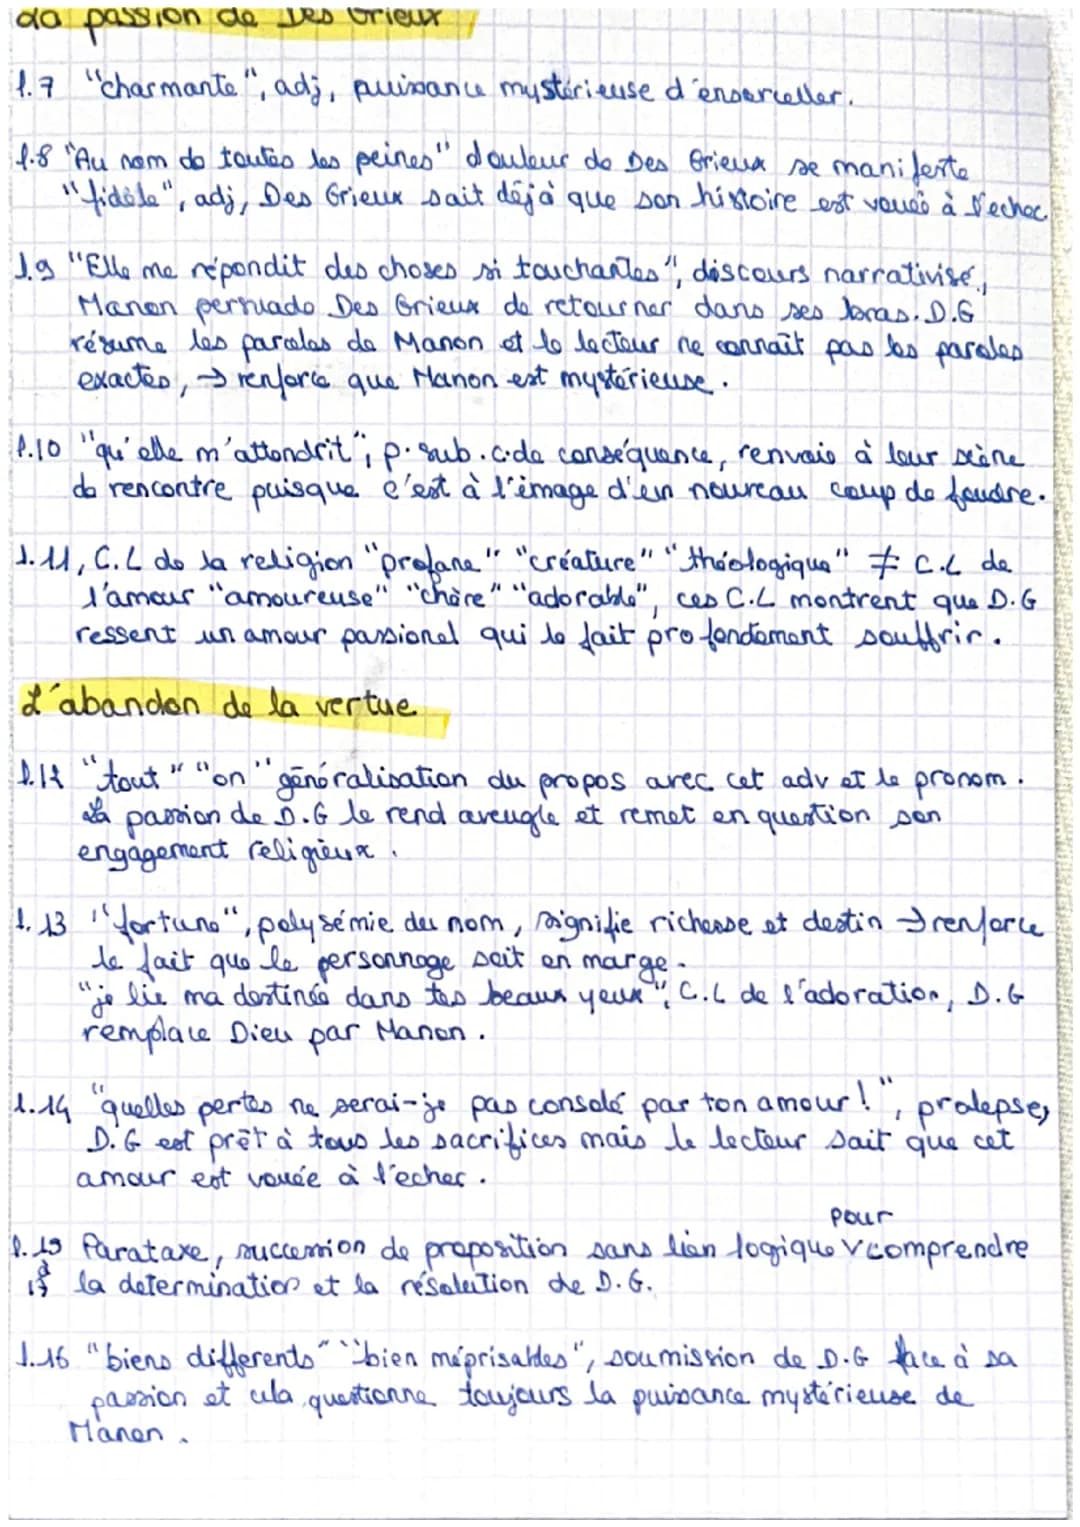 La passion de Des Grieux
l.7 "charmante", adj, puissance mystérieuse d'ensorceller.
l.8 "Au nom de toutes les peines" douleur de Des Grieux se manifeste
"fidèle", adj, Des Grieux sait déjà que son histoire est vouée à l'echec
l.9 "Elle me répondit des choses si touchantes", discours narrativisé,
Manon persuade Des Grieux de retourner dans ses bras. D.G
résume les paroles de Manon et le lecteur ne connaît pas les paroles
exactes, → renforce que Manon est mystérieuse.
l.10 "qu'elle m'attendrit", p. sub. c. de conséquence, renvoie à leur scène
de rencontre puisque c'est à l'image d'un nouveau coup de foudre.
l.11, C.L de la religion "profane" "créature" "théologique" ≠ C.L de
l'amour "amoureuse" "chère" "adorable", ces C.L montrent que D.G
ressent un amour passionel qui le fait profondement souffrir.
L'abandon de la vertue
"tout" "on" généralisation du propos avec cet adv et le pronom.
La passion de D.G le rend aveugle et remet en question son
engagement religieux.
l.13 "fortune", polysémie du nom, signifie richesse et destin → renforce
le fait que le personnage soit en marge.
"je lie ma destinée dans tes beaux yeux", C.L de l'adoration, D.G
remplace Dieu par Manon.
l.14 "quelles pertes ne serai-je pas consolé par ton amour!", prolepse,
D.G est prêt à tous les sacrifices mais le lecteur sait que cet
amour est vouée à l'echec.
pour
l.15 Parataxe, succession de proposition sans lien logique v comprendre
à 17 la determination et la résolution de D.G.
l.16 "biens differents" "bien méprisables", soumission de D.G face à sa
passion et cela questionne toujours la puissance mystérieuse de
Manon.